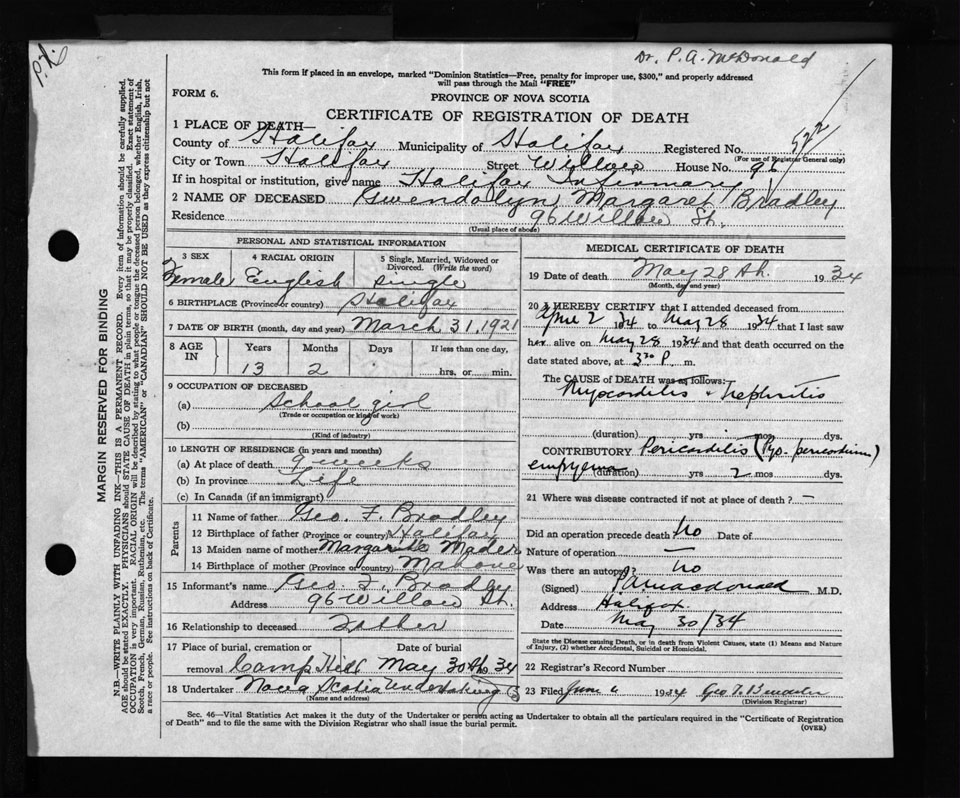 P.X.
Dr. P. A. McDonald
This form if placed in an envelope, marked "Dominion Statistics—Free, penalty for improper use, $300," and properly addressed
will pass through the Mail "FREE"
FORM 6.
PROVINCE OF NOVA SCOTIA
CERTIFICATE OF REGISTRATION OF DEATH
1 PLACE OF DEATH—
County of Halifax Municipality of Halifax Registered No. 522
(For use of Registrar General only)
City or Town Halifax Street Willow House No. 96
If in hospital or institution, give name Halifax Infirmary
2 NAME OF DECEASED Gwendolyn Margaret Bradley
Residence 96 Willow St.
(Usual place of abode)
MARGIN RESERVED FOR BINDING
N.B.—WRITE PLAINLY WITH UNFADING INK—THIS IS A PERMANENT RECORD. Every item of information should be carefully supplied.
AGE should be stated EXACTLY. PHYSICIANS should STATE CAUSE OF DEATH in plain terms, so that it may be properly classified. Exact statement of
OCCUPATION is very important. RACIAL ORIGIN will be described by stating to what people or tongue the deceased person belonged, whether English, Irish,
Scotch, French, German, Russian, Ruthenian, etc. The terms "AMERICAN" or "CANADIAN" SHOULD NOT BE USED as they express citizenship but not
a race or people. See instructions on back of Certificate.
PERSONAL AND STATISTICAL INFORMATION
3 SEX 4 RACIAL ORIGIN 5 Single, Married, Widowed or
Divorced. (Write the word)
Female English Single
6 BIRTHPLACE (Province or country) Halifax
7 DATE OF BIRTH (month, day and year) March 31, 1921
8 AGE IN Years Months Days If less than one day,
13 2 hrs. or min.
9 OCCUPATION OF DECEASED
(a) School girl
(Trade or occupation or kind of work)
(b)
(Kind of industry)
10 LENGTH OF RESIDENCE (in years and months)
(a) At place of death 9 weeks
(b) In province Life
(c) In Canada (if an immigrant)
Parents
11 Name of father Geo. F. Bradley
12 Birthplace of father (Province or country) Halifax
13 Maiden name of mother Margarite Mader
14 Birthplace of mother (Province or country) Mahone
15 Informant's name Geo. F. Bradley
Address 96 Willow St.
16 Relationship to deceased Father
17 Place of burial, cremation or Date of burial
removal Camp Hill May 30th 1934
18 Undertaker Nova Scotia Undertaking Co
(Name and address)
MEDICAL CERTIFICATE OF DEATH
19 Date of death May 28th. 1934
(Month, day and year)
20 I HEREBY CERTIFY that I attended deceased from
April 2 1934 to May 28 1934 that I last saw
her alive on May 28 1934 and that death occurred on the
date stated above, at 3:30 P m.
The CAUSE of DEATH was as follows:
Myocarditis + Nephritis
(duration) yrs mos dys.
CONTRIBUTORY Pericarditis (Pyo. pericardium)
empyema (duration) yrs 2 mos dys.
21 Where was disease contracted if not at place of death? —
Did an operation precede death No Date of
Nature of operation —
Was there an autopsy? No
(Signed) P A Macdonald M.D.
Address Halifax
Date May 30/34
State the Disease causing Death, or in death from Violent Causes, state (1) Means and Nature
of Injury, (2) whether Accidental, Suicidal or Homicidal.
22 Registrar's Record Number
23 Filed June 6 1934 Geo T.
(Division Registrar)
Sec. 46—Vital Statistics Act makes it the duty of the Undertaker or person acting as Undertaker to obtain all the particulars required in the "Certificate of Registration
of Death" and to file the same with the Division Registrar who shall issue the burial permit.
(OVER)